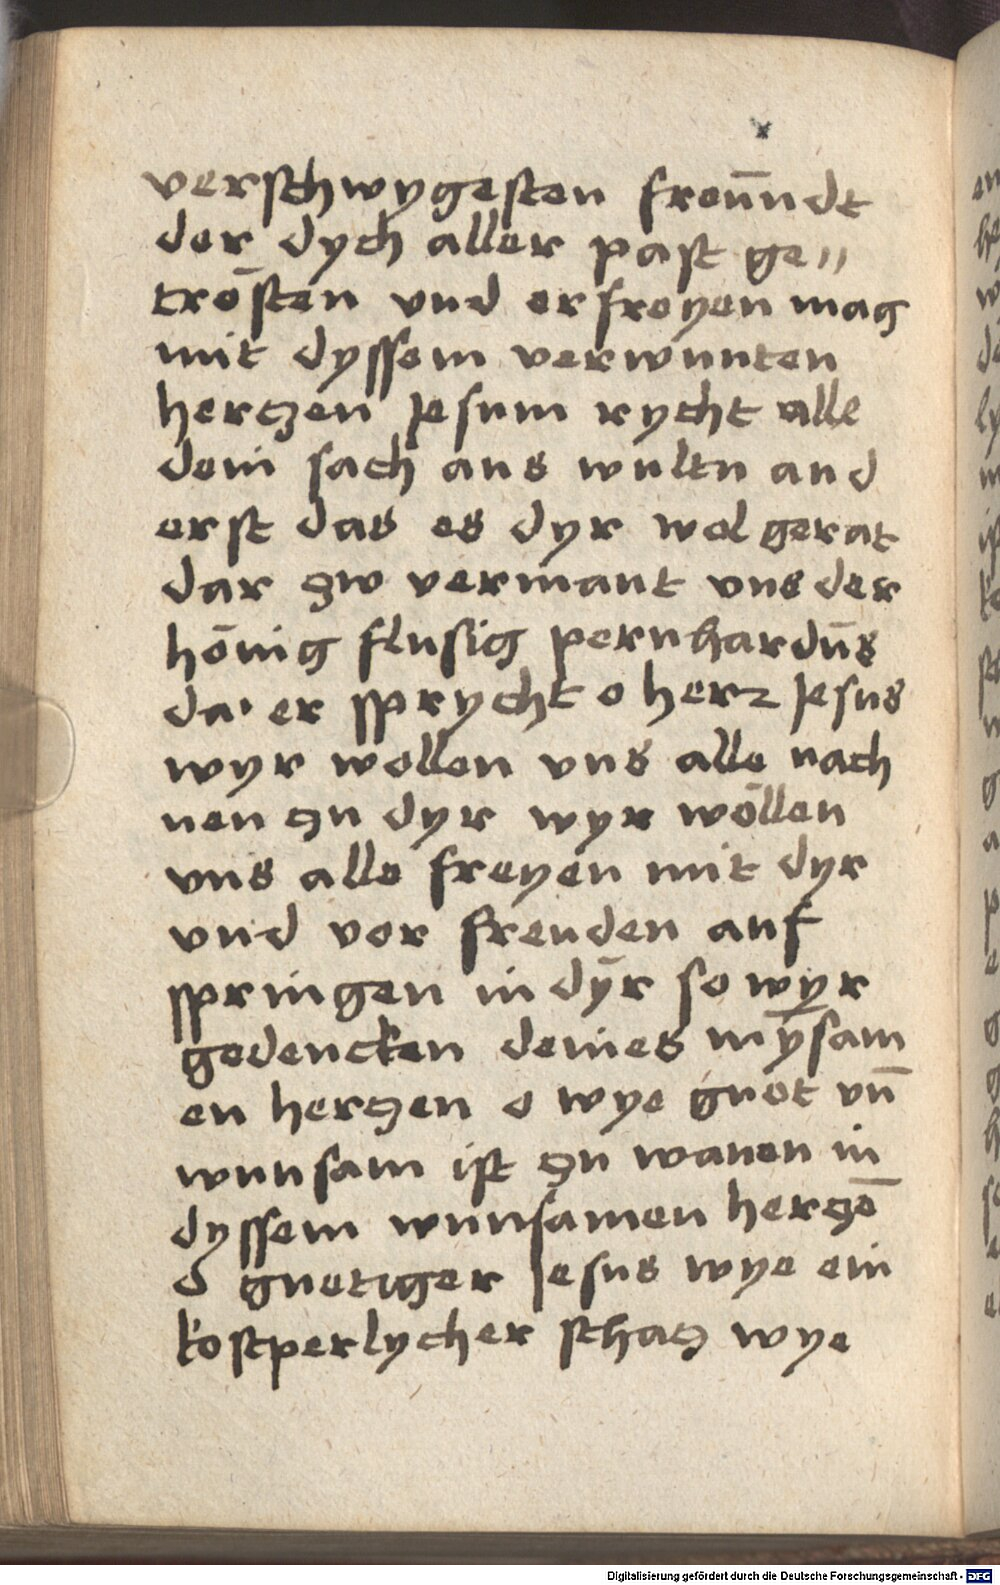 verschwygesten freūndt
der dych aller past ge〃
trösten vnd erfreyen mag
mit dyssem verwunten
hertzen Jesum rycht alle
dein sach aus wultu and
erst das es dyr wol gerat
dar zw vermant vns der
hönig flusig pernhardūs
da er sprycht o herz Jesus
wyr wollen vns alle nach
nen zu dyr wyr wöllen
vns alle freyen mit dyr
vnd vor freuden auf
springen in dyr so wyr
gedencken deines mynsam
en hertzen o wye guot vn̄
wunsam ist zu wanen in
dyssem wunsamen hertzē
O guetiger Jesus wye ein
kostperlycher schatz wye
Digitalisierung gefördert durch die Deutsche Forschungsgemeinschaft - DFG